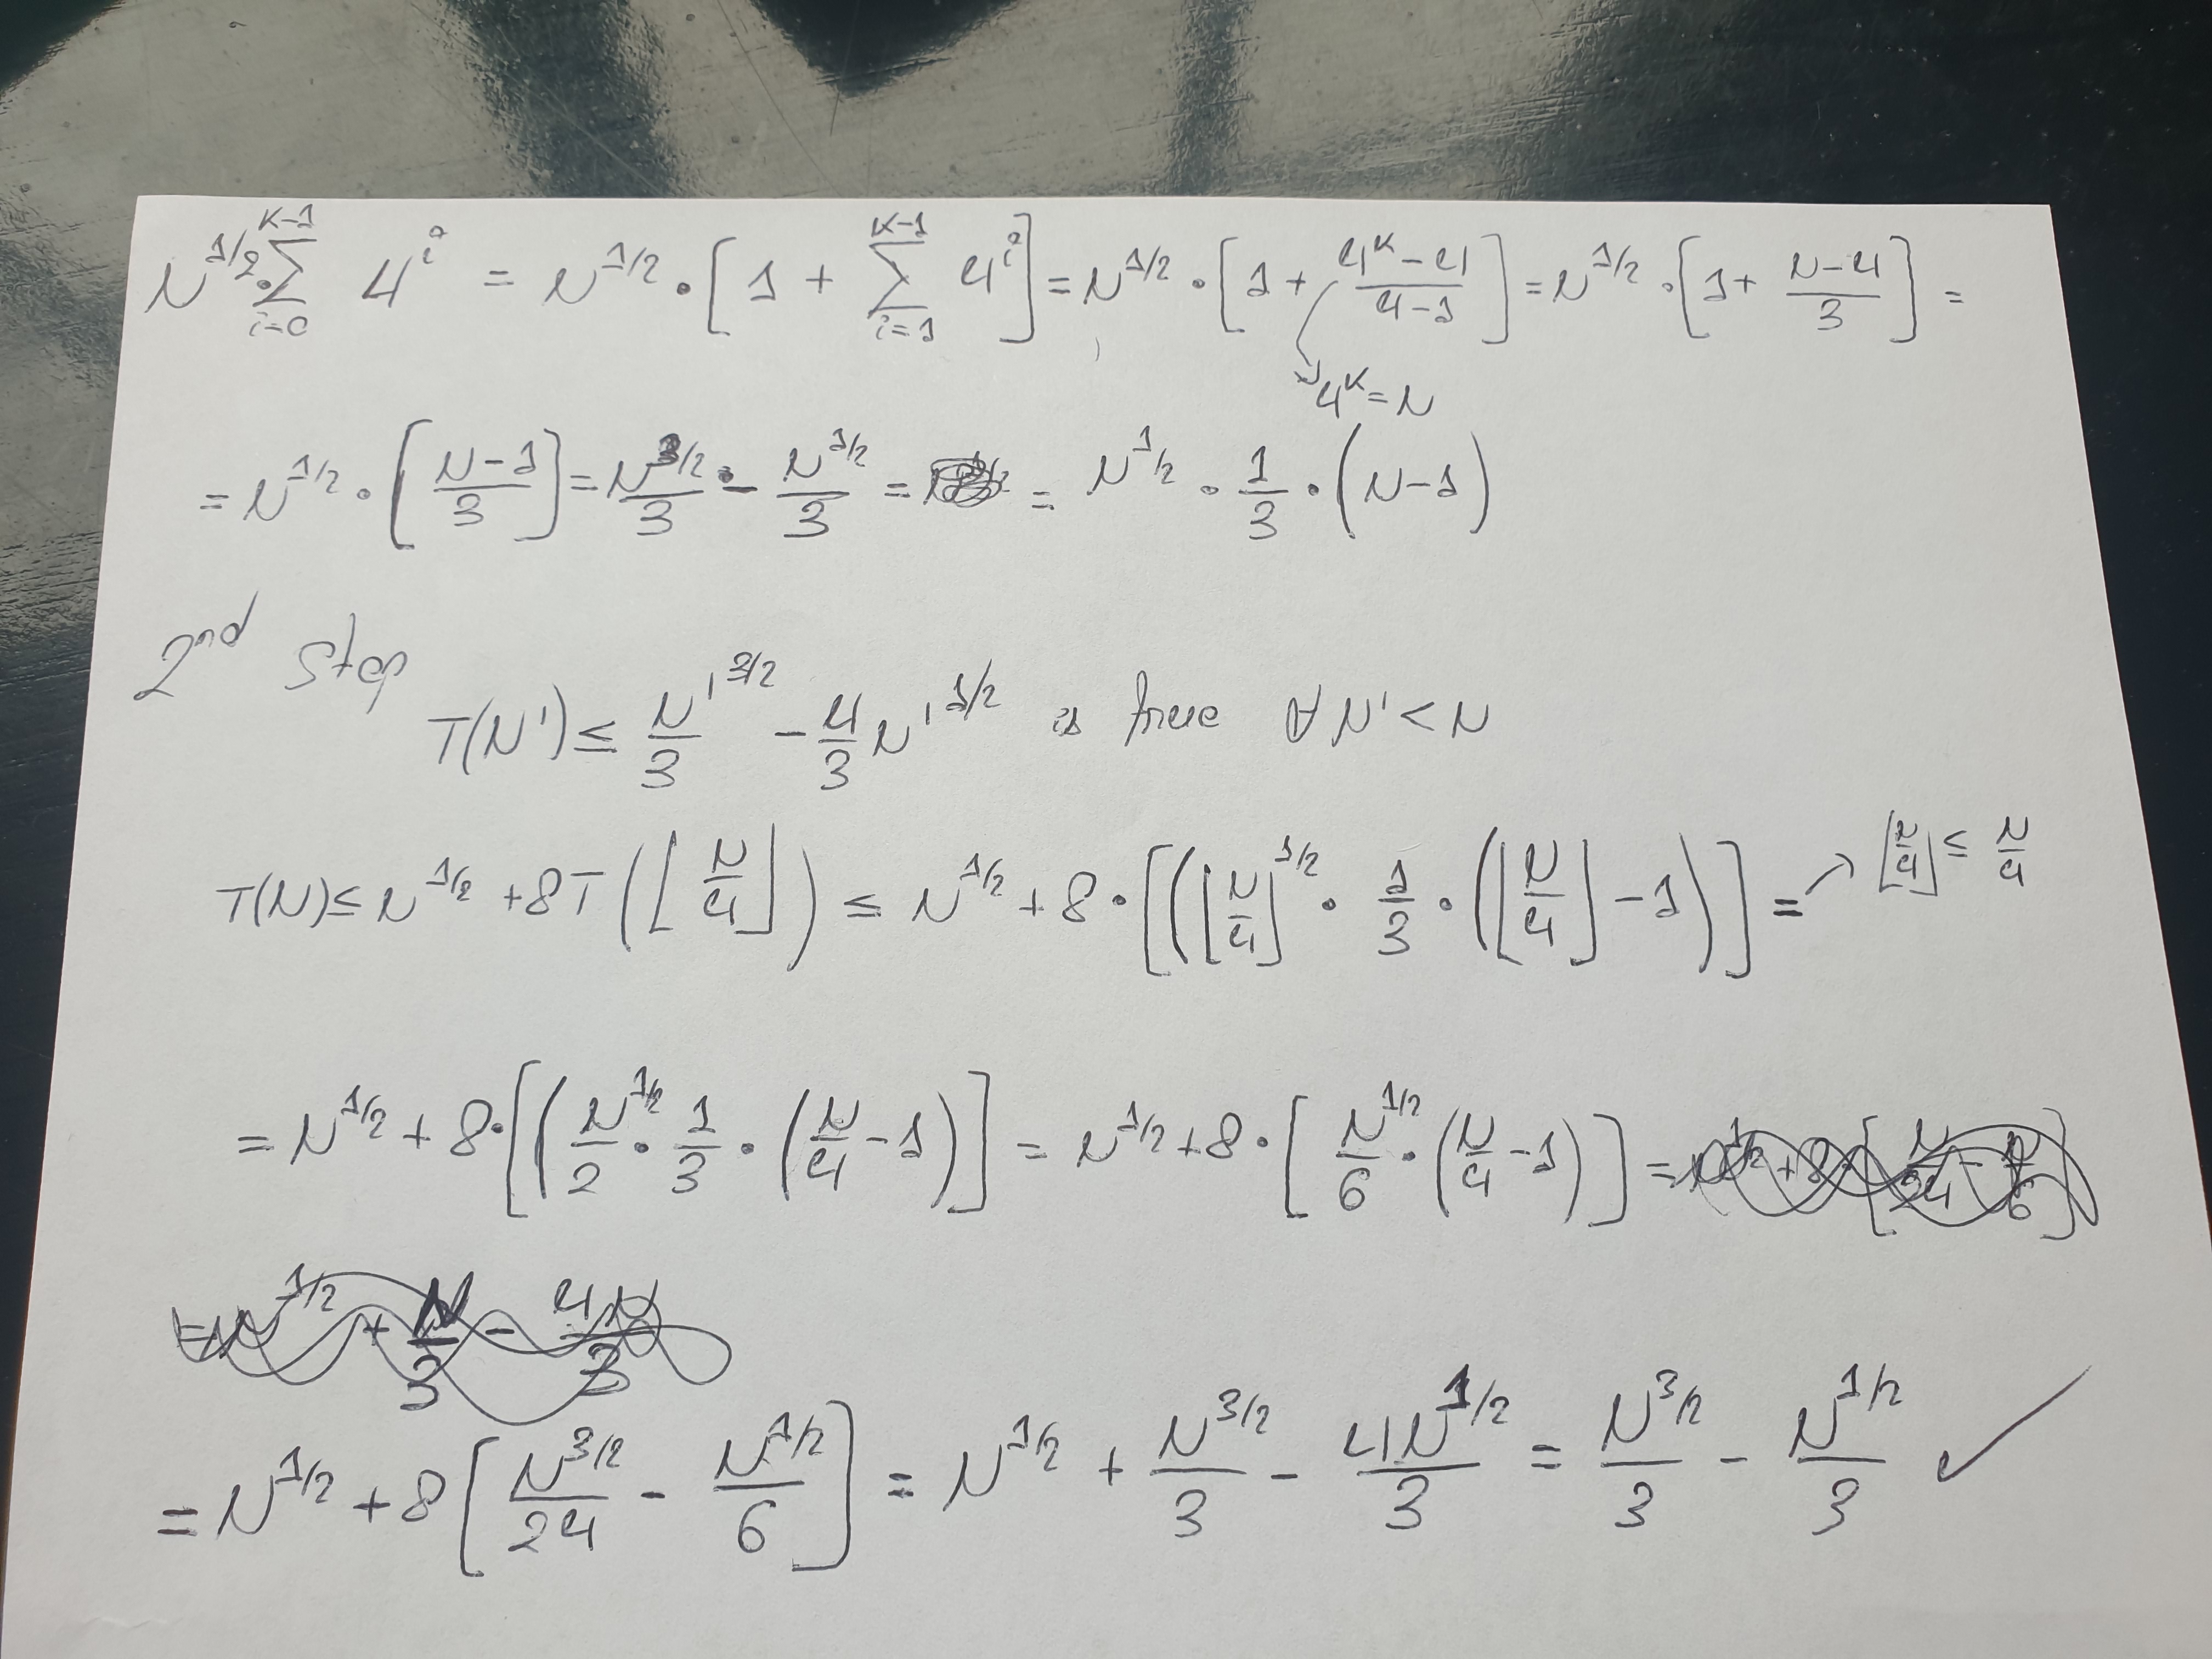 N^{1/2} · \sum_{i=0}^{K-1} 4^i = N^{1/2} · [1 + \sum_{i=1}^{K-1} 4^i] = N^{1/2} · [1 + \frac{4^K - 4}{4 - 1}] = N^{1/2} · [1 + \frac{N - 4}{3}] =
4^K = N
= N^{1/2} · [\frac{N - 1}{3}] = \frac{N^{3/2}}{3} - \frac{N^{1/2}}{3} = = N^{1/2} · \frac{1}{3} · (N - 1)
2nd Step
T(N') ≤ \frac{N'^{3/2}}{3} - \frac{4}{3} N'^{1/2} is true ∀ N' < N
T(N) ≤ N^{1/2} + 8T(⌊\frac{N}{4}⌋) ≤ N^{1/2} + 8 · [(⌊\frac{N}{4}⌋^{1/2} · \frac{1}{3} · (⌊\frac{N}{4}⌋ - 1)] = → ⌊\frac{N}{4}⌋ ≤ \frac{N}{4}
= N^{1/2} + 8 · [(\frac{N^{1/2}}{2} · \frac{1}{3} · (\frac{N}{4} - 1)] = N^{1/2} + 8 · [\frac{N^{1/2}}{6} · (\frac{N}{4} - 1)] =
= N^{1/2} + 8[\frac{N^{3/2}}{24} - \frac{N^{1/2}}{6}] = N^{1/2} + \frac{N^{3/2}}{3} - \frac{4N^{1/2}}{3} = \frac{N^{3/2}}{3} - \frac{N^{1/2}}{3} ✓